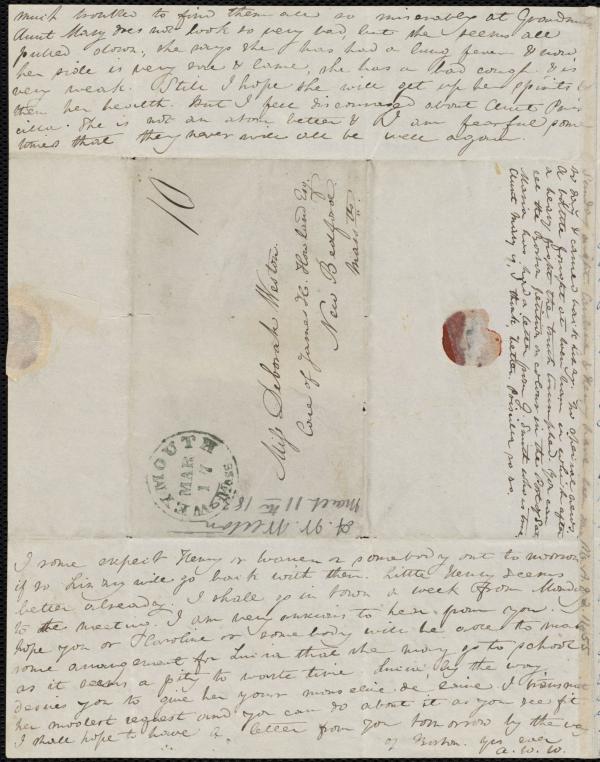 much trouble to find them all so miserably at Grandma
Aunt Mary does not look so very bad, but she seems all
pulled down, she says she has had a lung fever & now
her side is very sore & lame, she has a bad cough & is
very weak. Still I hope she will get up her spirits &
then her health. But I feel discouraged about Aunt Pris
cilla. She is not an atom better & I am fearful some
times that they never will all be well again.
10
Miss Deborah Weston.
Care of James H. Howland Esq.
New Bedford
Masstts.
WEYMOUTH
MAR
17
MS.
A. W. Weston
March 11th 18
Sunday night Caroline & Henry have been
to day & came back
A battle fought at
a heavy fight the truth triumphed. You can
see the
Maria has had a letter from G. Smith who is
Aunt Mary is, I think better. Priscilla so so.
I some expect Henry or Warren or somebody out to morrow
if so Lizzy will go back with them. Little Henry seems
better already. I shall go in town a week from Monday
to the meeting. I am very anxious to hear from you. I
hope you or Caroline or somebody will be able to make
some arrangement for Lucia that she may go to school
as it seems a pity to waste time. Lucia, by the way
desires you to give her your mousseline de laine. I transmit
her modest request and you can do about it as you see fit
I shall hope to have a letter from you tomorrow by the way
of Boston. Yrs ever
A. W. W.